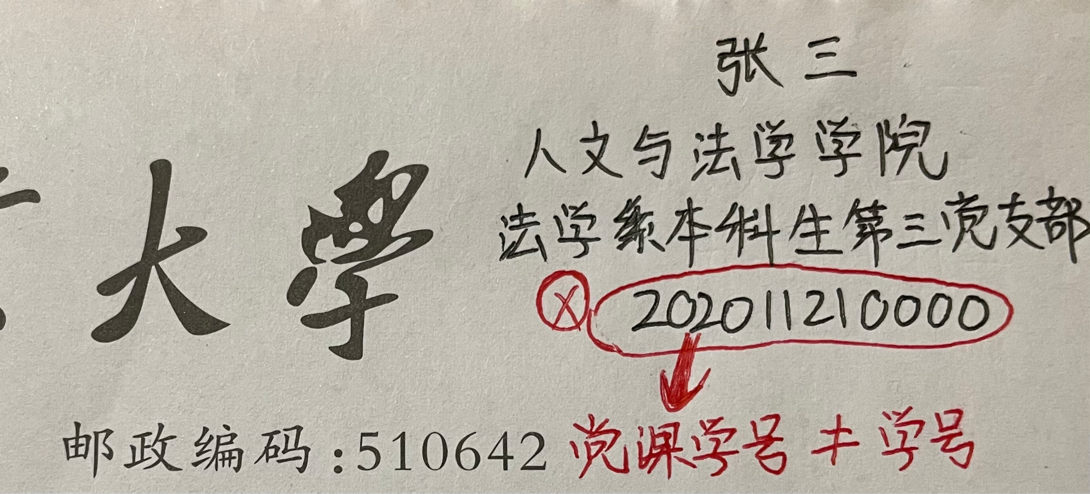 张三
人文与法学学院
大學
法学系本科生第三党支部
X 202011210000
邮政编码:510642
党课学号≠学号